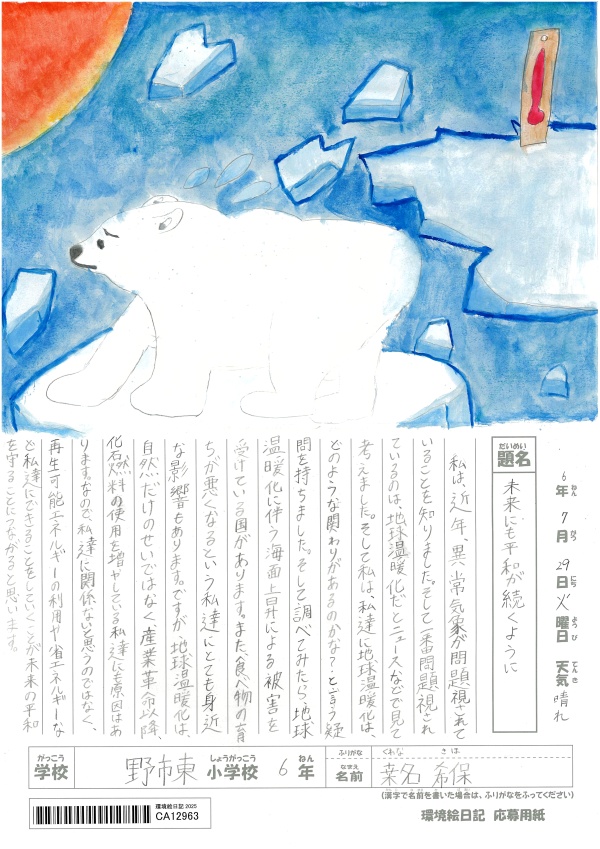 6年 7月 29日 火曜日 天気 晴れ
題名 未来にも平和が続くように
私は、近年、異常気象が問題視されて
いることを知りました。そして一番問題視され
ているのは、地球温暖化だとニュースなどで見て
考えました。そして私は、私達に地球温暖化は、
どのような関わりがあるのかな?と言う疑
問を持ちました。そして調べてみたら、地球
温暖化に伴う海面上昇による被害を
受けている国があります。また、食べ物の育
ちが悪くなるという私達にとても身近
な影響もあります。ですが、地球温暖化は、
自然だけのせいではなく、産業革命以降、
化石燃料の使用を増やしている私達にも原因はあ
ります。なので、私達に関係ないと思うのではなく、
再生可能エネルギーの利用や省エネルギーな
ど私達にできることをしていくことが未来の平和
を守ることにつながると思います。
がっこう しょうがっこう ねん
学校 野市東 小学校 6年
ふりがな くれな きほ
なまえ
名前 桒名 希保
(漢字で名前を書いた場合は、ふりがなをふってください)
環境絵日記 2025
CA12963
環境絵日記 応募用紙